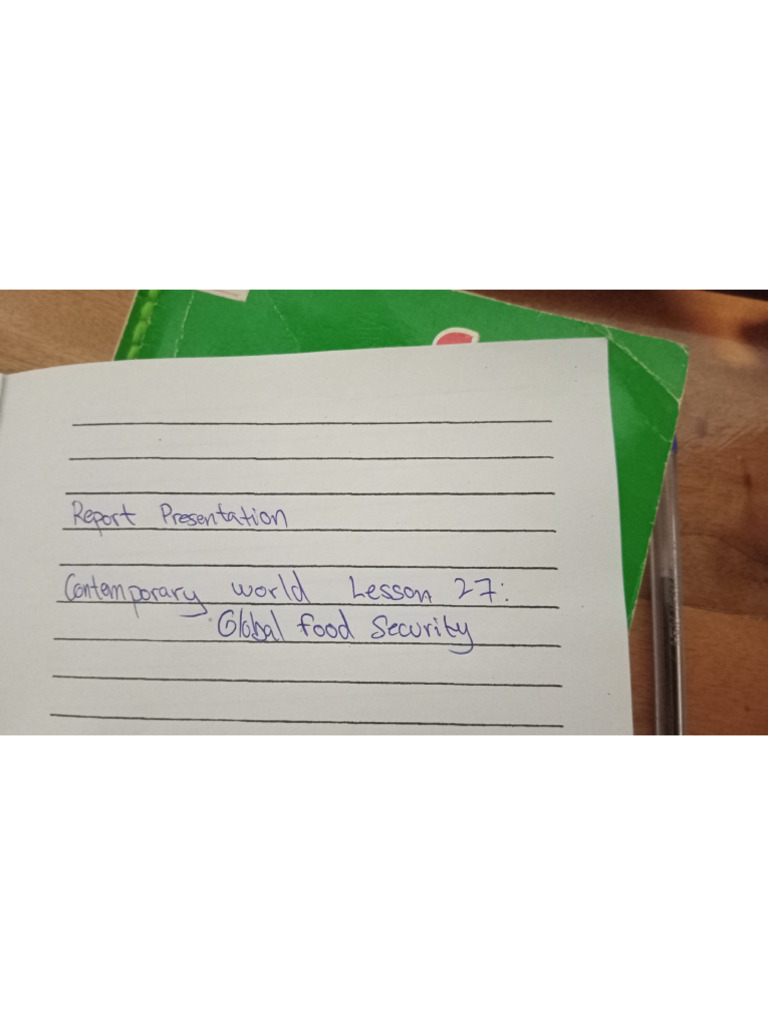 Report Presentation
Contemporary world Lesson 27:
Global food Security